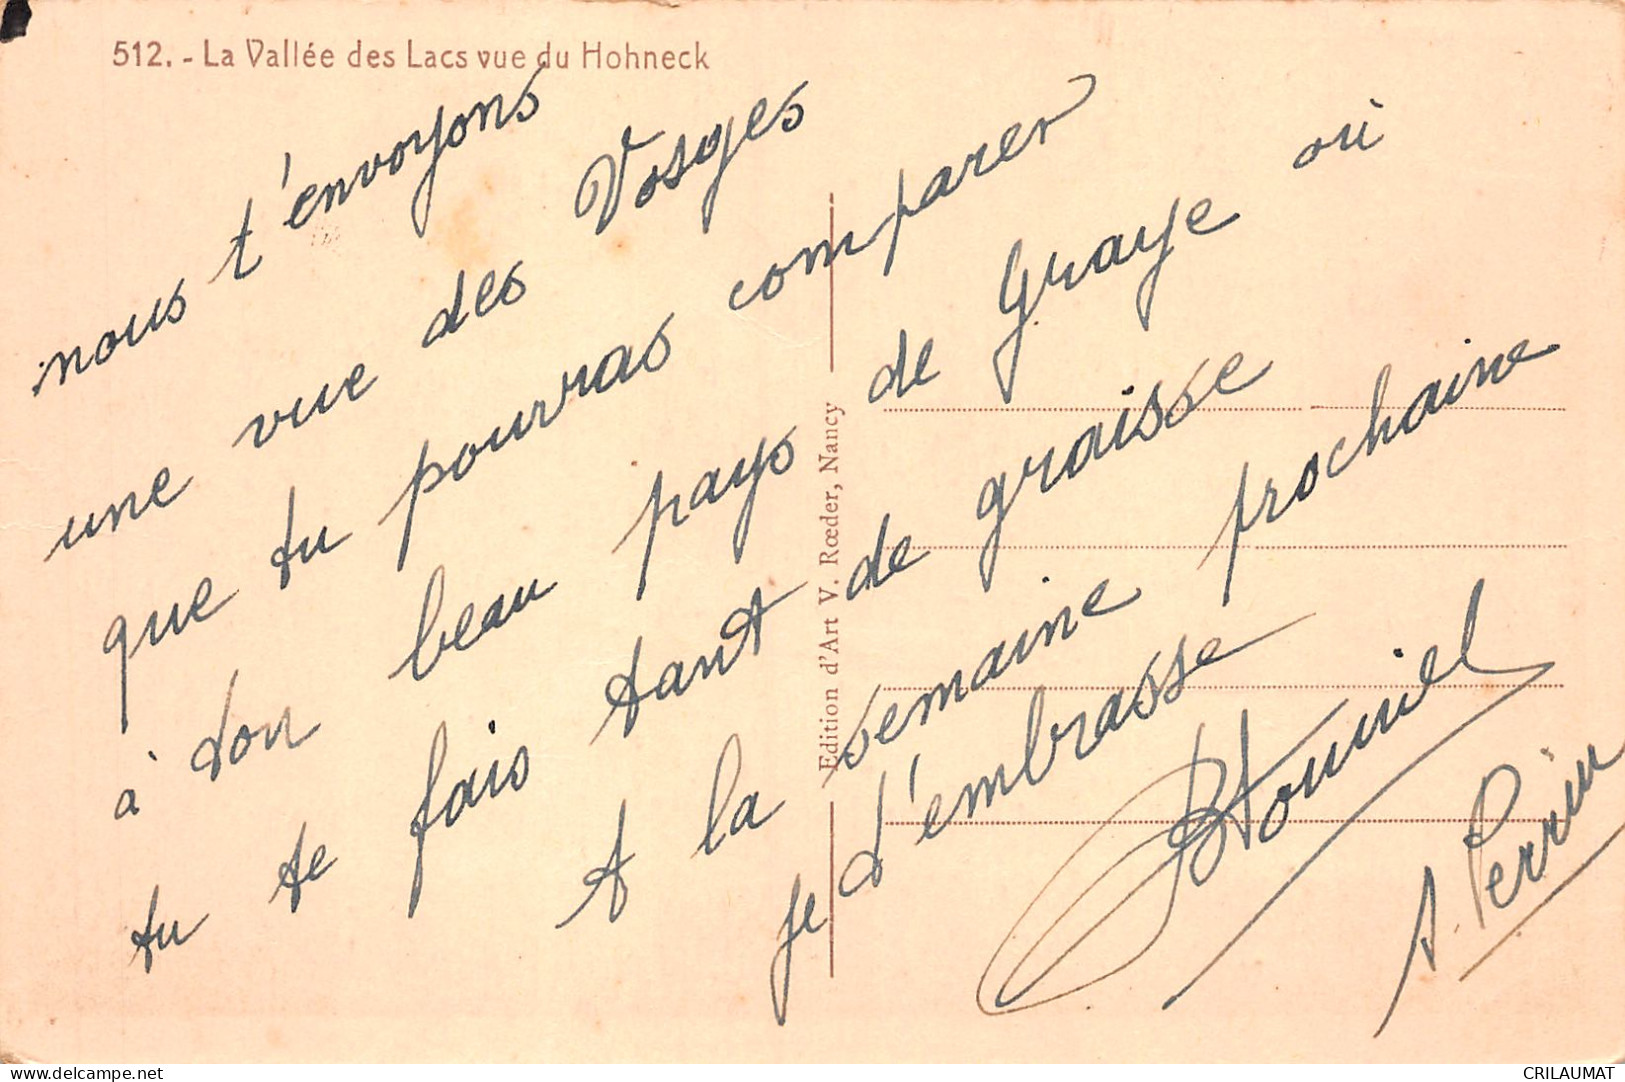 512. - La Vallée des Lacs vue du Hohneck
nous t'envoyons
une vue des Vosges
que tu pourras comparer
à ton beau pays de Graye où
tu te fais tant de graisse
A la semaine prochaine
je t'embrasse
A. Perrin
Edition d'Art V. Rœder, Nancy
delcampe.net
CRILAUMAT